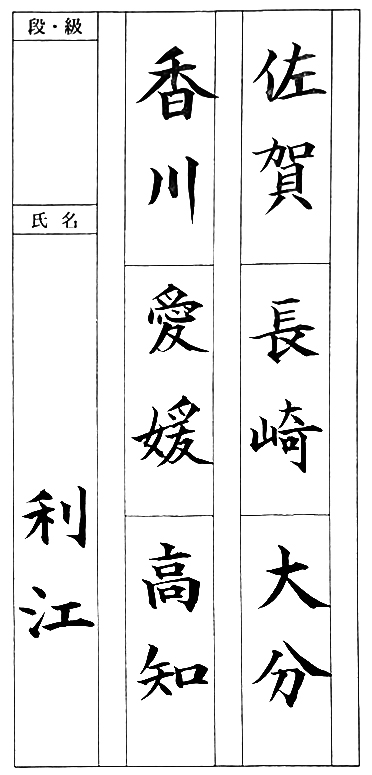 佐賀
長崎
大分
香川
愛媛
高知
段・級
氏名
利江